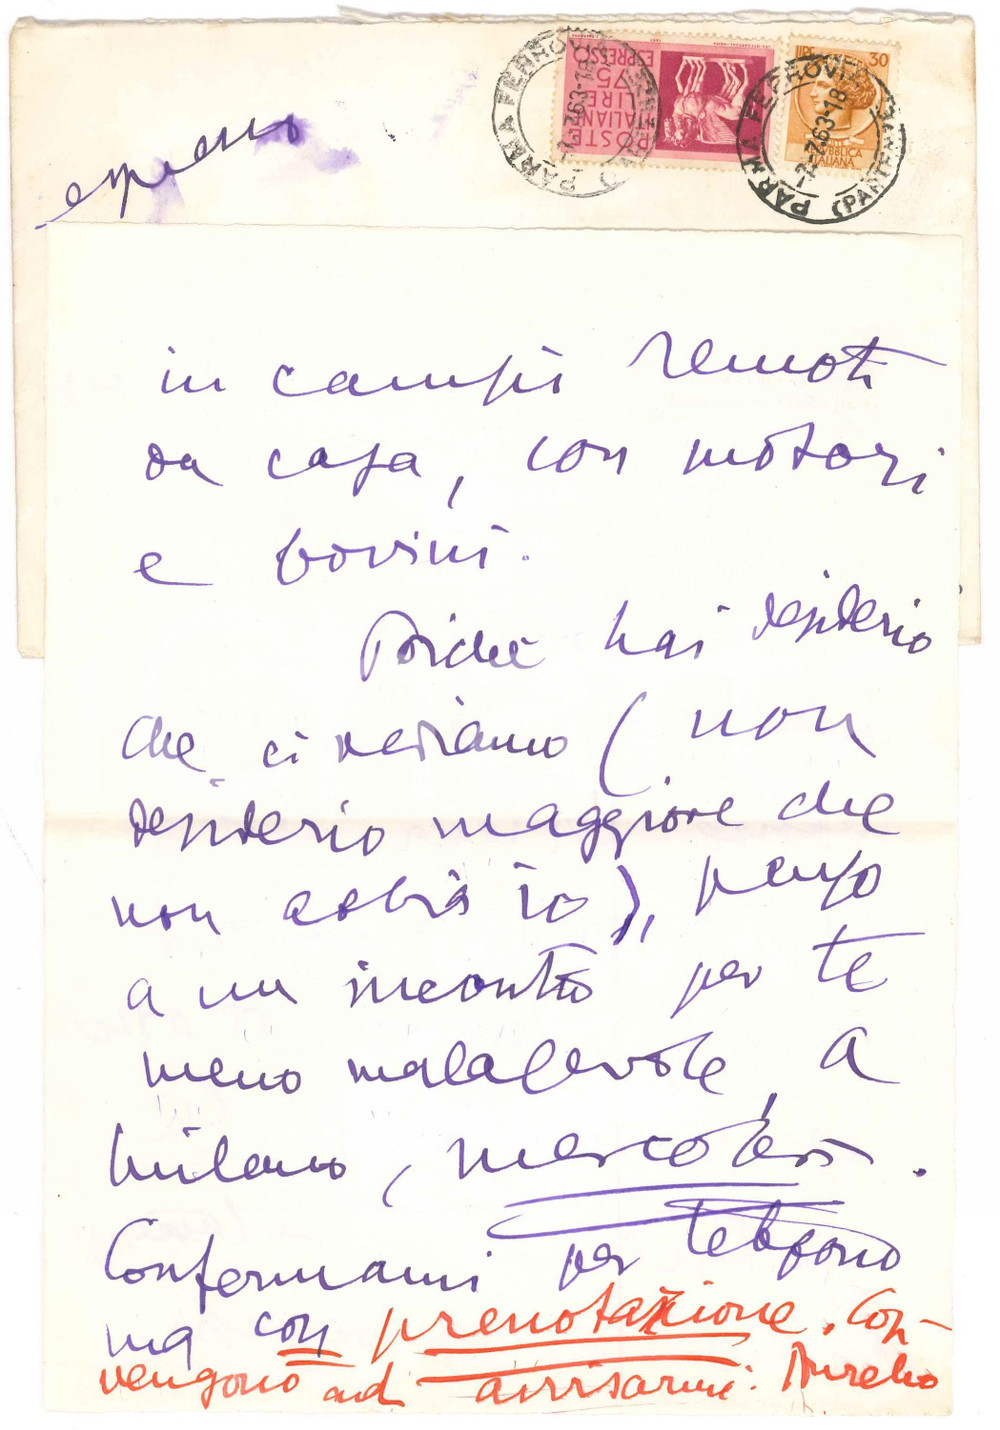 espresso
POSTE ITALIANE LIRE 75 ESPRESSO
LIRE 30
REPUBBLICA ITALIANA
PARMA FERROVIA
PARMA FERROVIA
in campi remoti
da casa, con motori
e bovini.
Poiché hai desiderio
che ci vediamo (non
desiderio maggiore che
non abbia io), penso
a un incontro per te
meno malagevole, a
Milano, mercoledì.
Confermami per telefono
ma con prenotazione. Con-
vengono ad avvisarmi. Aurelio